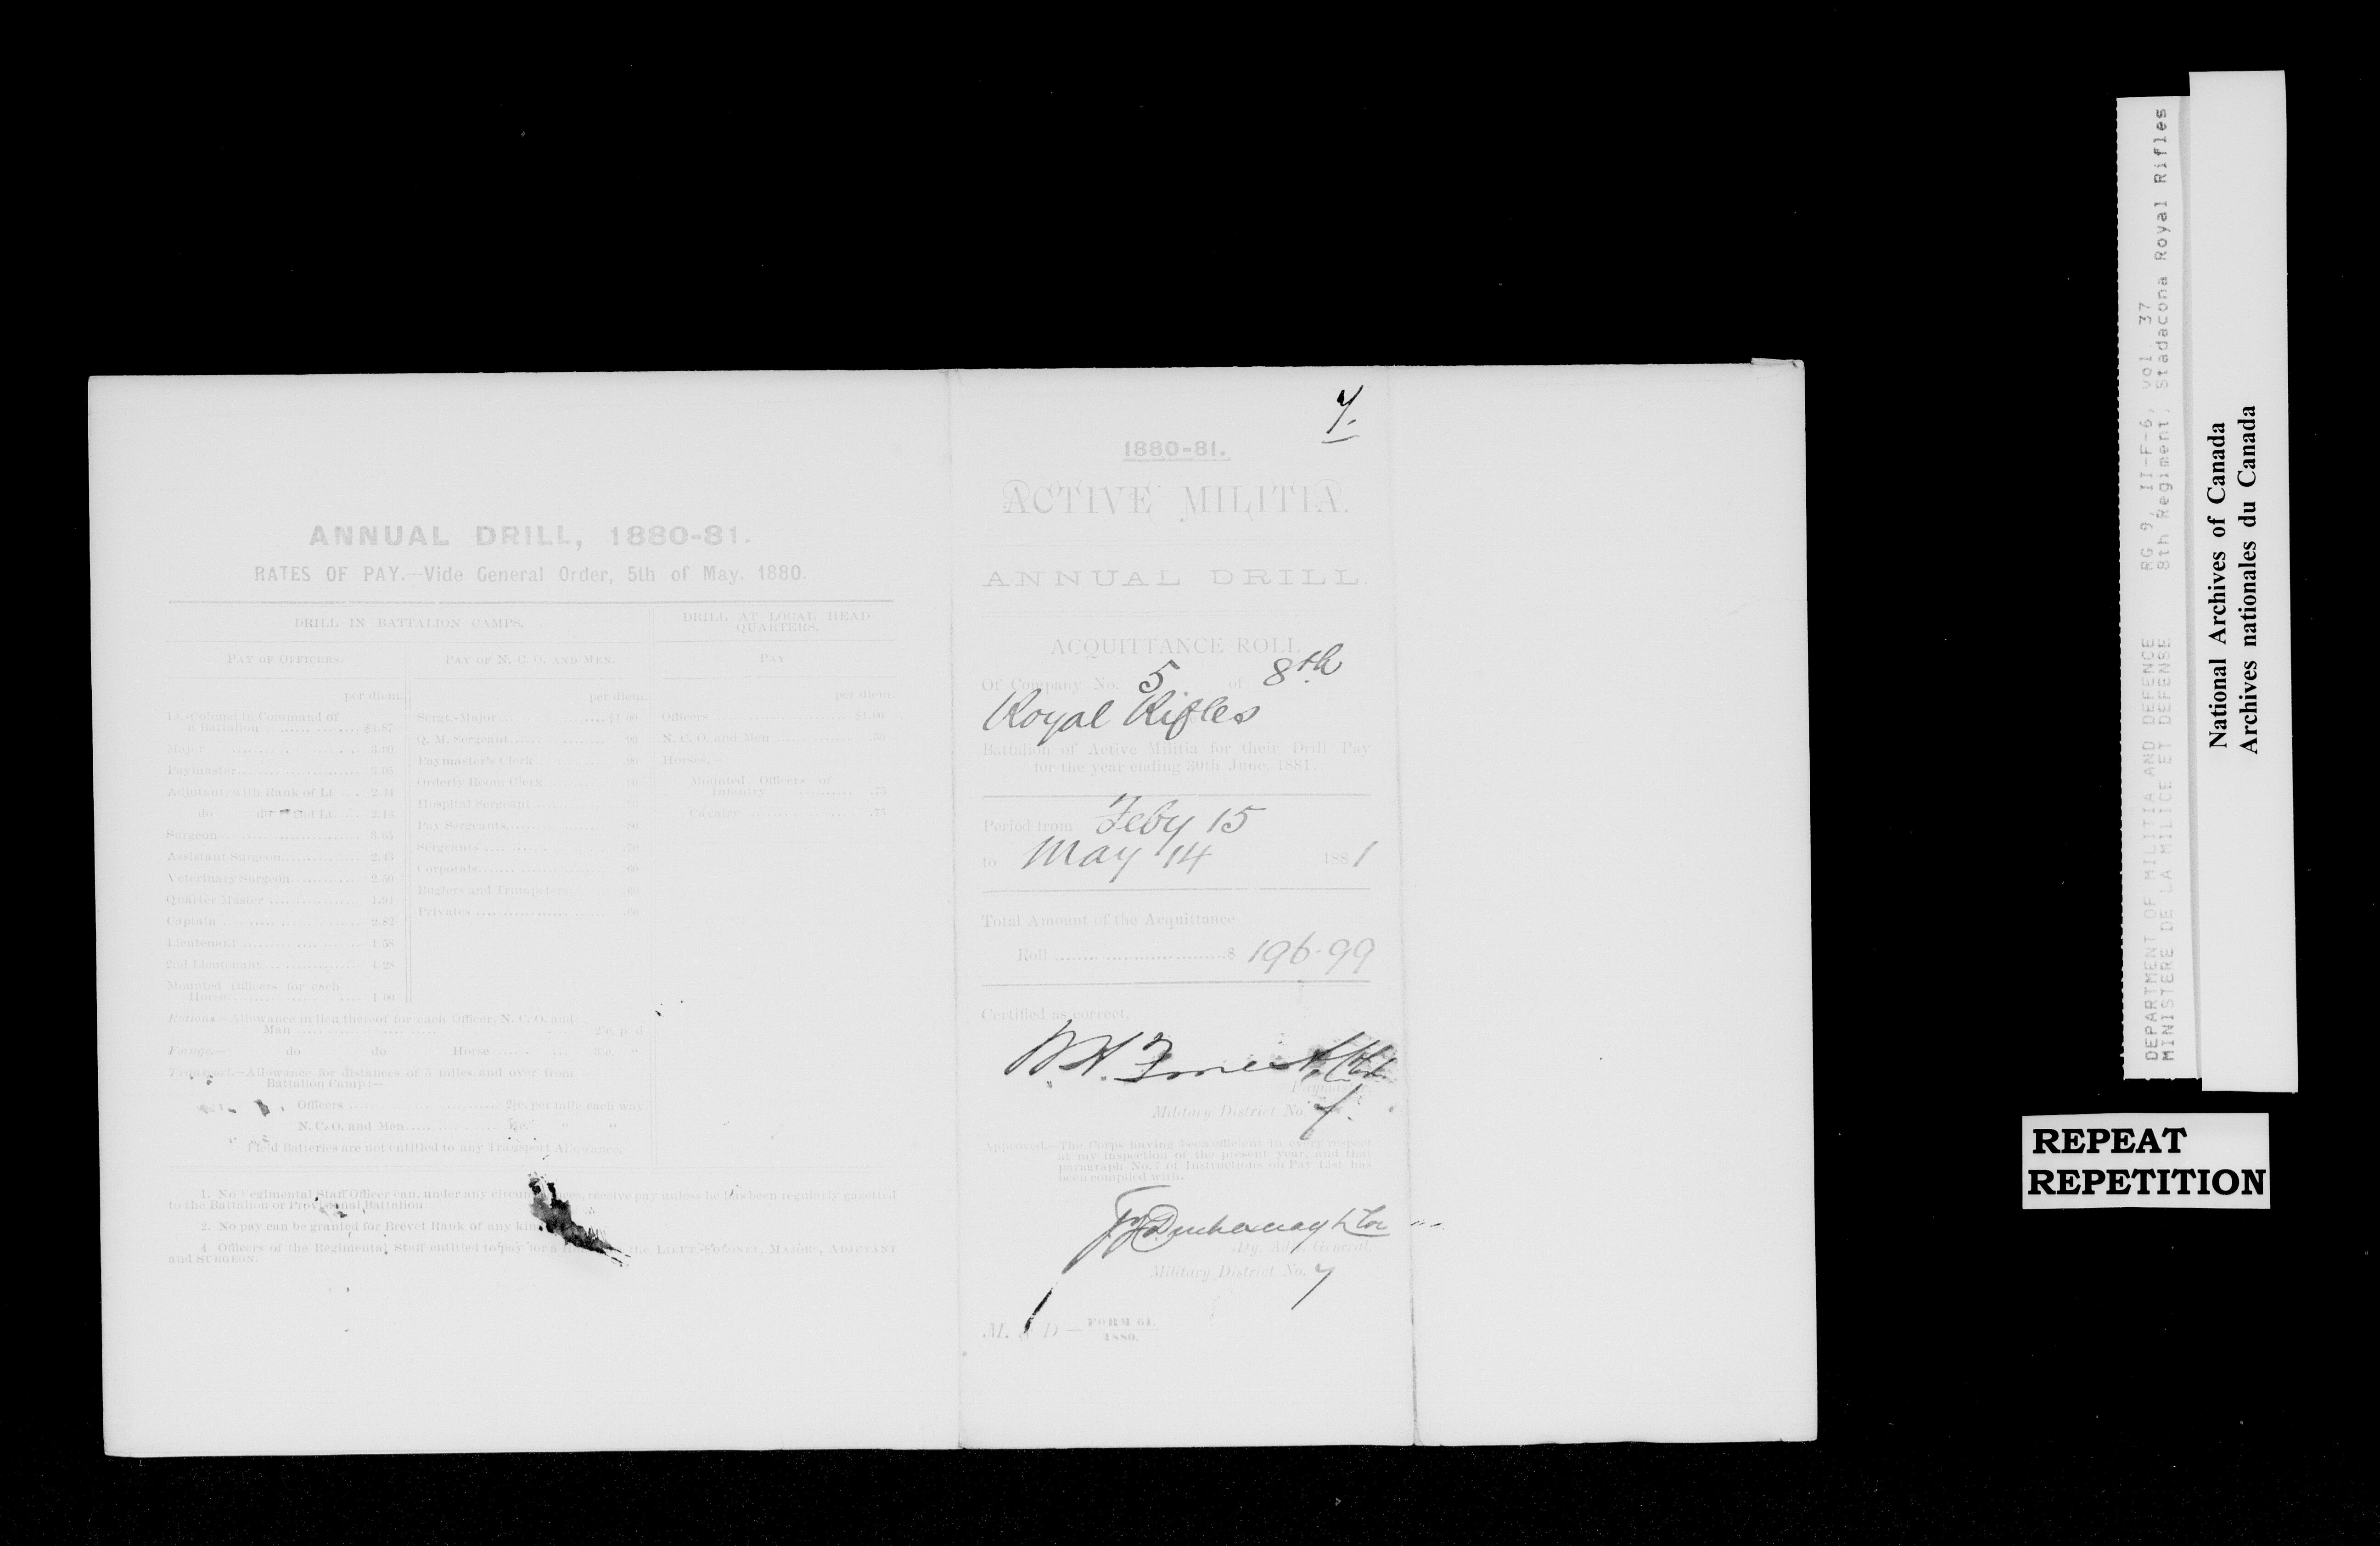 ANNUAL DRILL, 1880-81.
RATES OF PAY.—Vide General Order, 5th of May, 1880.
DRILL IN BATTALION CAMPS.
DRILL AT LOCAL HEAD
QUARTERS.
PAY OF OFFICERS.
PAY OF N. C. O. AND MEN.
PAY
per diem.
Lt.-Colonel in Command of
a Battalion ........ $4.87
Major ........ 3.90
Paymaster........ 3.05
Adjutant, with Rank of Lt .... 2.44
do do 2nd Lt .... 2.13
Surgeon ........ 3.65
Assistant Surgeon........ 2.43
Veterinary Surgeon........ 2.50
Quarter Master ........ 1.94
Captain ........ 2.82
Lieutenant ........ 1.58
2nd Lieutenant ........ 1 28
Mounted Officers for each
Horse ........ 1 00
per diem.
Sergt.-Major ........ $1 00
Q. M. Sergeant ........ 90
Paymaster's Clerk ........ 90
Orderly Room Clerk ........
Hospital Sergeant ........
Pay Sergeants........ 80
Sergeants ........
Corporals........ 60
Buglers and Trumpeters ........
Privates ........
per diem.
Officers ........ $1.00
N. C. O. and Men ........ .50
Horses,—
Mounted Officers of
Infantry ........ .75
Cavalry ........ .75
Rations—Allowance in lieu thereof for each Officer, N. C. O. and
Man ........
Forage— do do Horse ........
Transport.—Allowance for distances of 5 miles and over from
Battalion Camp:—
Officers ........ per mile each way
N. C. O. and Men ........
Field Batteries are not entitled to any Transport Allowance.
1. No Regimental Staff Officer can, under any circumstances, receive pay unless he has been regularly gazetted
to the Battalion or Provisional Battalion
2. No pay can be granted for Brevet Rank of any
4 Officers of the Regimental Staff entitled to pay for a the LIEUT.-COLONEL, MAJORS, ADJUTANT
and SURGEON.
7.
1880-81.
ACTIVE MILITIA.
ANNUAL DRILL.
ACQUITTANCE ROLL
Of Company No. 5 of 8th
Royal Rifles
Battalion of Active Militia for their Drill Pay
for the year ending 30th June, 1881.
Period from Feby 15
to May 14 1881
Total Amount of the Acquittance
Roll ........ $ 196.99
Certified as correct,
Military District No. 7.
Approved.—The Corps having been efficient in every respect
at my inspection of the present year, and that
paragraph No. 7 of Instructions on Pay List has
been complied with.
Dy. Adj. General,
Military District No. 7
M. & D — FORM 61.
1880.
DEPARTMENT OF MILITIA AND DEFENCE RG 9, II-F-6, vol. 37
MINISTERE DE LA MILICE ET DEFENSE 8th Regiment, Stadacona Royal Rifles
National Archives of Canada
Archives nationales du Canada
REPEAT
REPETITION